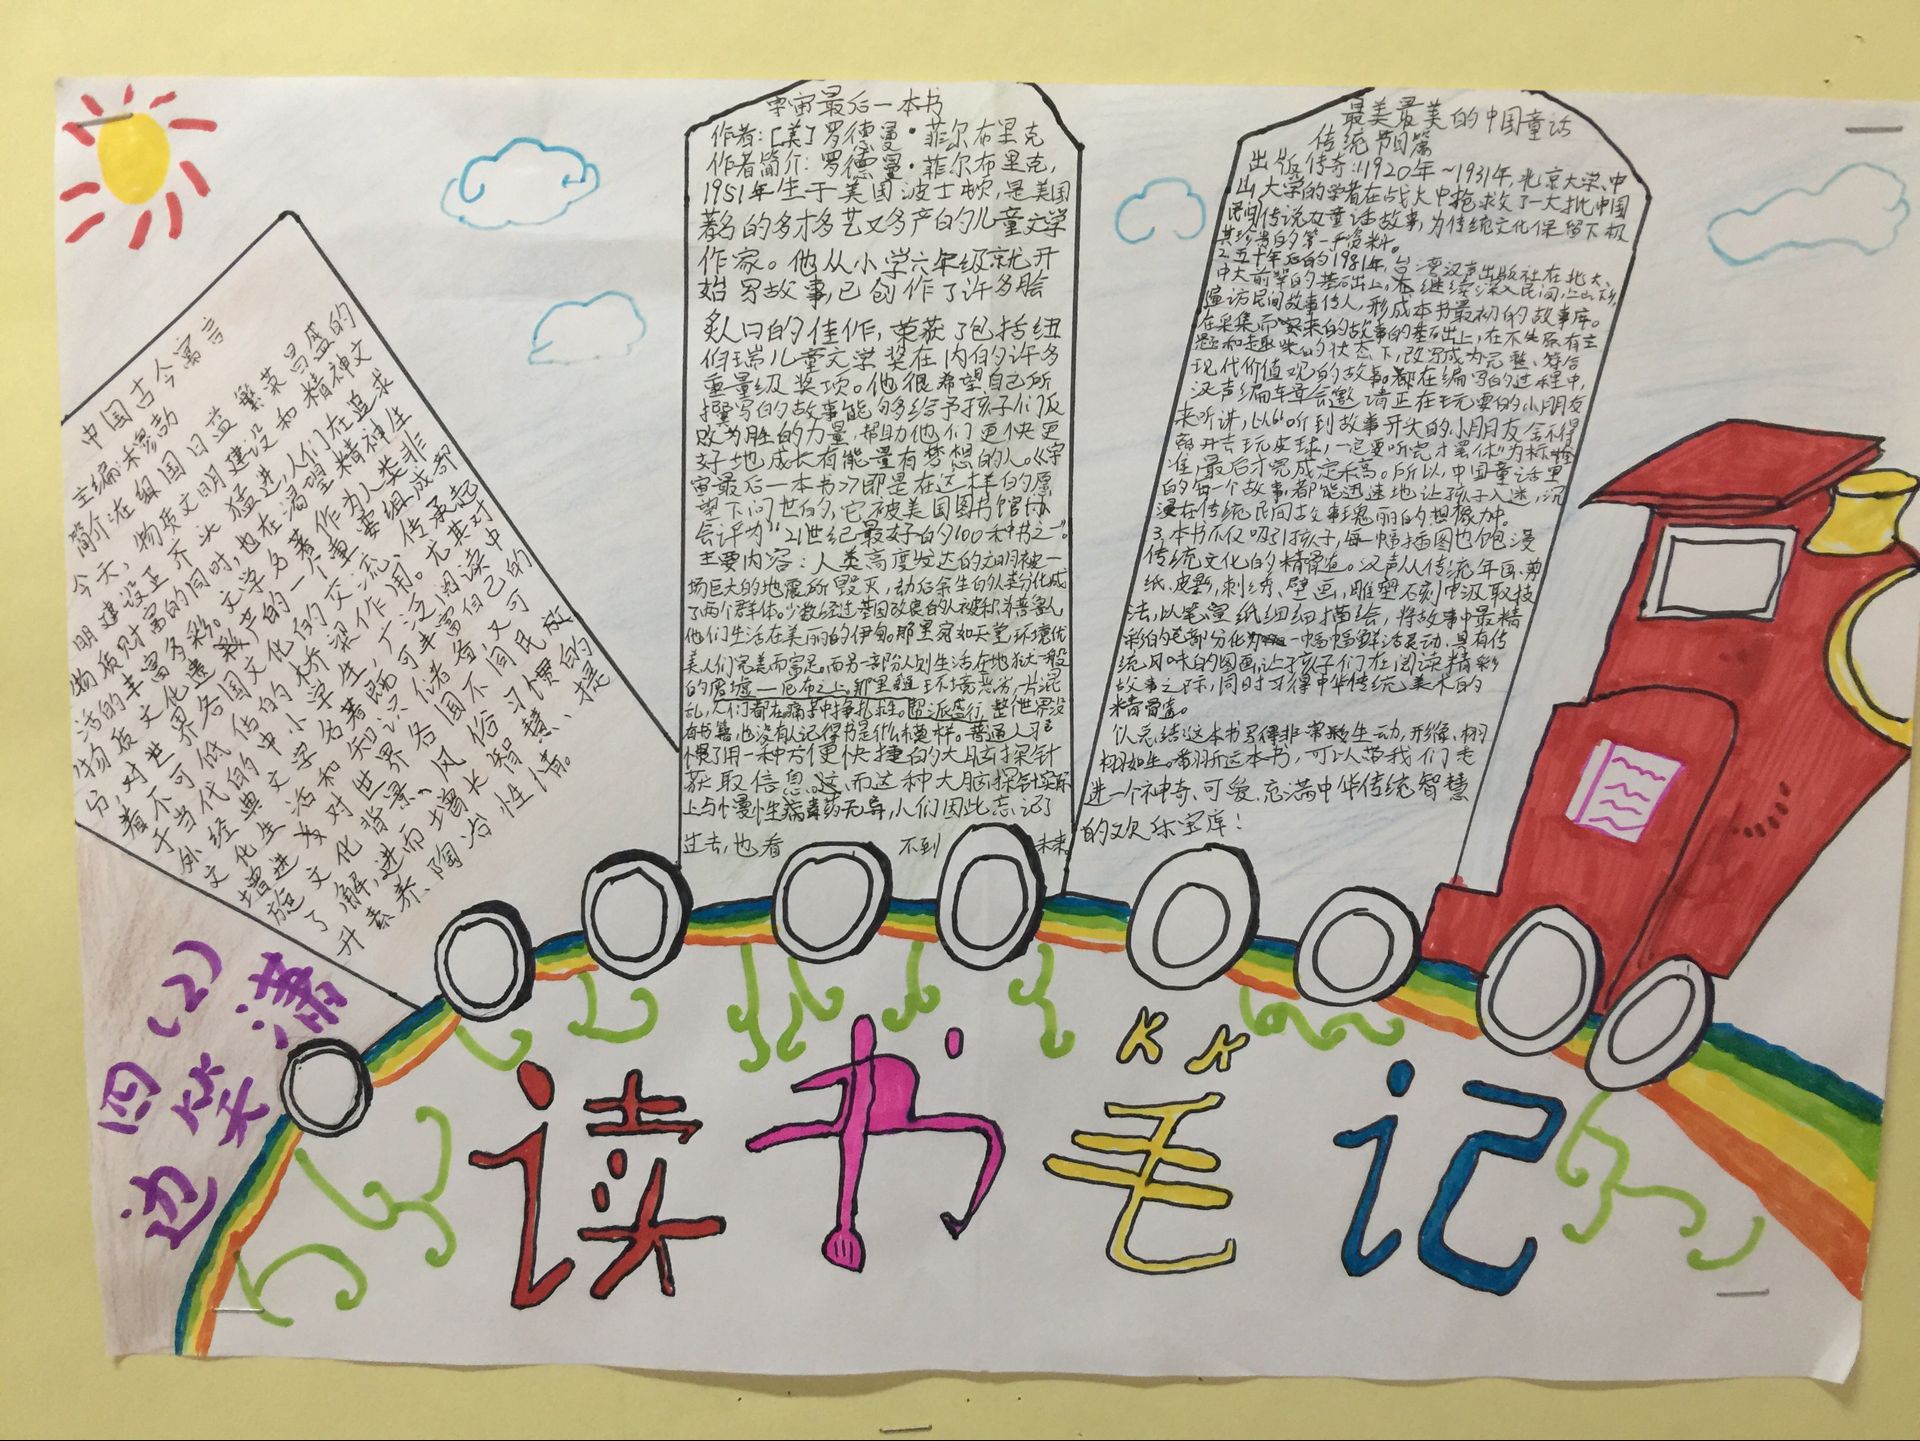 中国古今寓言
主编:
简介:在祖国日益繁荣昌盛的
今天,物质文明建设和精神文
明建设正齐头猛进,人们在追求
物质财富的同时,也在渴望精神生
活的丰富多彩。文学名著作为人类非
物质文化遗产的一个重要组成部
分,对世界各国文化的交流、传承起
着不可低估的桥梁作用。尤其对
于当代的中小学生,广泛阅读中
外经典文学名著既可丰富自己的
文化生活和知识储备又可
增进对世界各国不同民族
文化背景、风俗习惯的
了解,进而增长智慧、提
升素养、陶冶性情。
宇宙最后一本书
作者:[美]罗德曼·菲尔布里克
作者简介:罗德曼·菲尔布里克,
1951年生于美国波士顿,是美国
著名的多才多艺又多产的儿童文学
作家。他从小学六年级就开
始写故事,已创作了许多脍
炙人口的佳作,荣获了包括纽
伯瑞儿童文学奖在内的许多
重量级奖项。他很希望自己所
撰写的故事能够给予孩子们反
败为胜的力量,帮助他们更快更
好地成长有能量有梦想的人。《宇
宙最后一本书》即是在这样的愿
望下问世的,它被美国图书馆协
会评为“21世纪最好的100种书之一”。
主要内容:人类高度发达的文明被一
场巨大的地震所毁灭,劫后余生的人类分化成
了两个群体。少数经过基因改良的人被称为普鲁人
他们生活在美丽的伊甸。那里宛如天堂,环境优
美人们完美而富足。而另一部份人则生活在地狱一般
的废墟—厄布之上,那里环境恶劣,一片混
乱,人们都在痛苦中挣扎求生。帮派盛行,整个世界没
有书籍,也没有人记得书是什么模样。普通人习
惯了用一种方便快捷的大脑探针
获取信息。而这种大脑探针实际
上与慢性病毒药无异,人们因此忘记了
过去,也看不到未来。
最美最美的中国童话
传统节日篇
出版传奇:1920年~1931年,北京大学、中
山大学的学者在战火中抢救了一大批中国
民间传说及童话故事,为传统文化保留下极
其珍贵的第一手资料。
2.五十年后的1981年,台湾汉声出版社在北大、
中大前辈的基础上,继续深入民间,
遍访民间故事传人,形成本书最初的故事库。
在采集而来的故事的基础上,在不失原有主
题和趣味的状态下,改写成为完整、符合
现代价值观的故事。都在编写的过程中,
汉声编辑会邀请正在玩耍的小朋友
来听讲,以“听到故事开头的小朋友舍不得
离开去玩皮球,一定要听完才罢休”为标
准,最后才完成定稿。所以,中国童话里
的每一个故事,都能迅速地让孩子入迷,沉
浸在传统民间故事瑰丽的想像中。
3.本书不仅吸引孩子,每一幅插图也饱浸
传统文化的精髓。汉声从传统年画、剪
纸、皮影,刺绣、壁画,雕塑石刻中汲取技
法,以笔墨纸细细描绘,将故事中最精
彩的部分化为一幅幅鲜活灵动,具有传
统风味的图画,让孩子们在阅读精彩
故事之际,同时习得中华传统美术的
精髓。
总结:这本书写得非常生动,形象,栩
栩如生。翻开这本书,可以带我们走
进一个神奇、可爱、充满中华传统智慧
的欢乐宝库!
四(2)
边笑潇
读书笔记